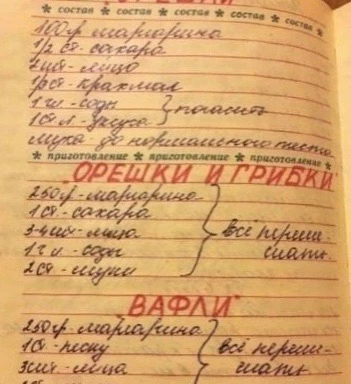 ОРЕШКИ
* состав * состав * состав * состав *
100гр маргарина
1/2 ст. сахара
2шт - яйцо
1/2ст - крахмал
1 ч.л - соды } погасить
1ст л - уксуса
мука до нормального теста
* приготовление * приготовление * приготовление *
ОРЕШКИ И ГРИБКИ"
250гр - маргарина
1 ст - сахара
3-4шт - яйца } всё переме-
1 ч л - соды шать.
2 ст - муки
ВАФЛИ"
250гр - маргарина
1 ст - песку } всё переме-
3шт - яйца шать